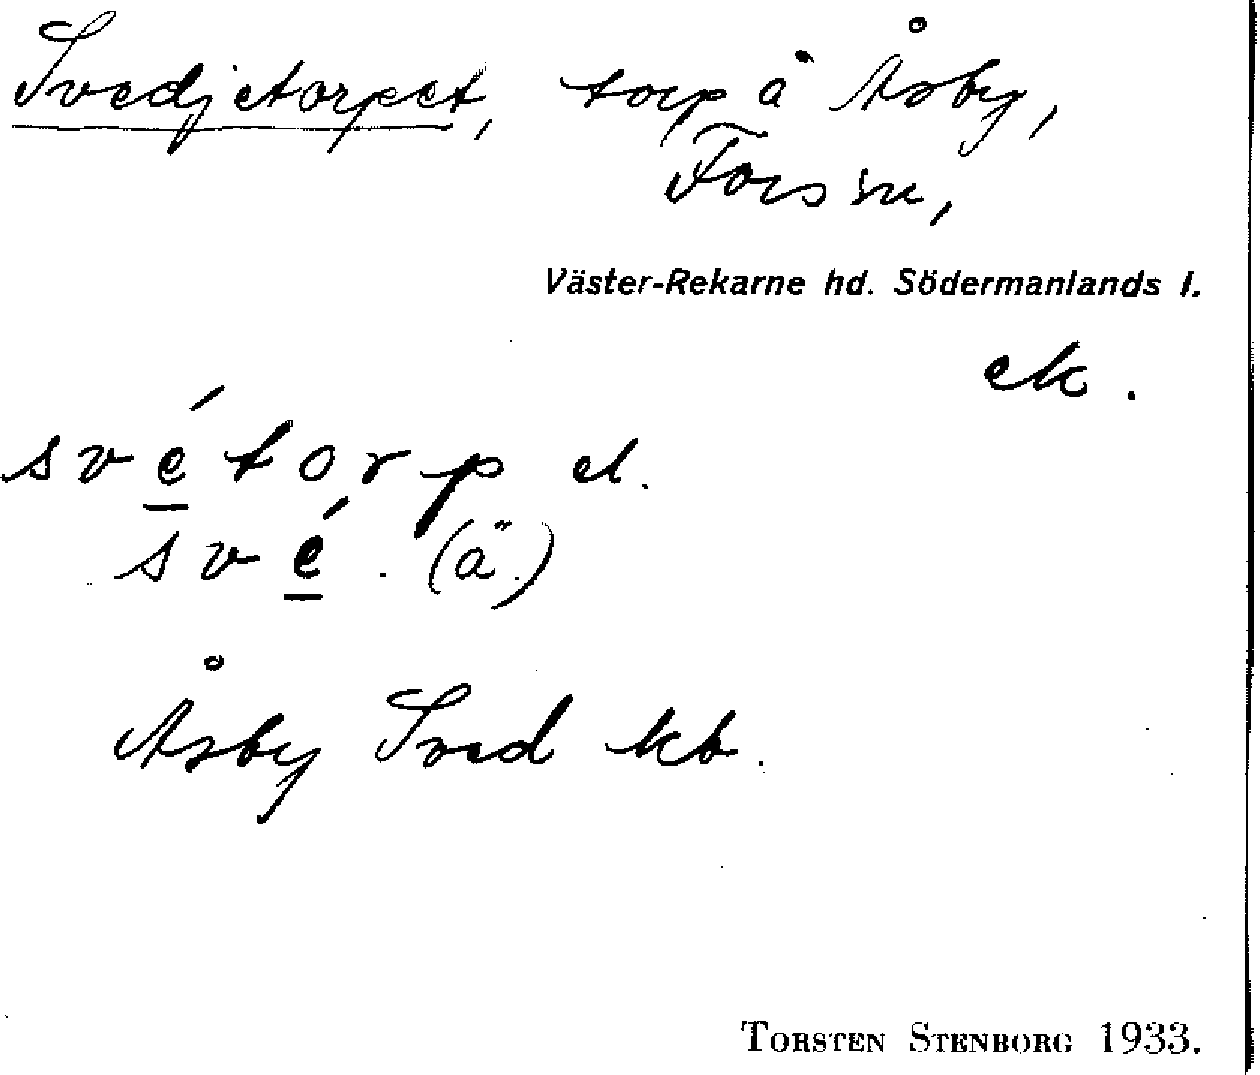 Svedjetorpet, torp å Åsby,
Fors sn,
Väster-Rekarne hd. Södermanlands l.
ek.
svétorp el.
své . (ä.)
Åsby Sved kb.
TORSTEN STENBORG 1933.